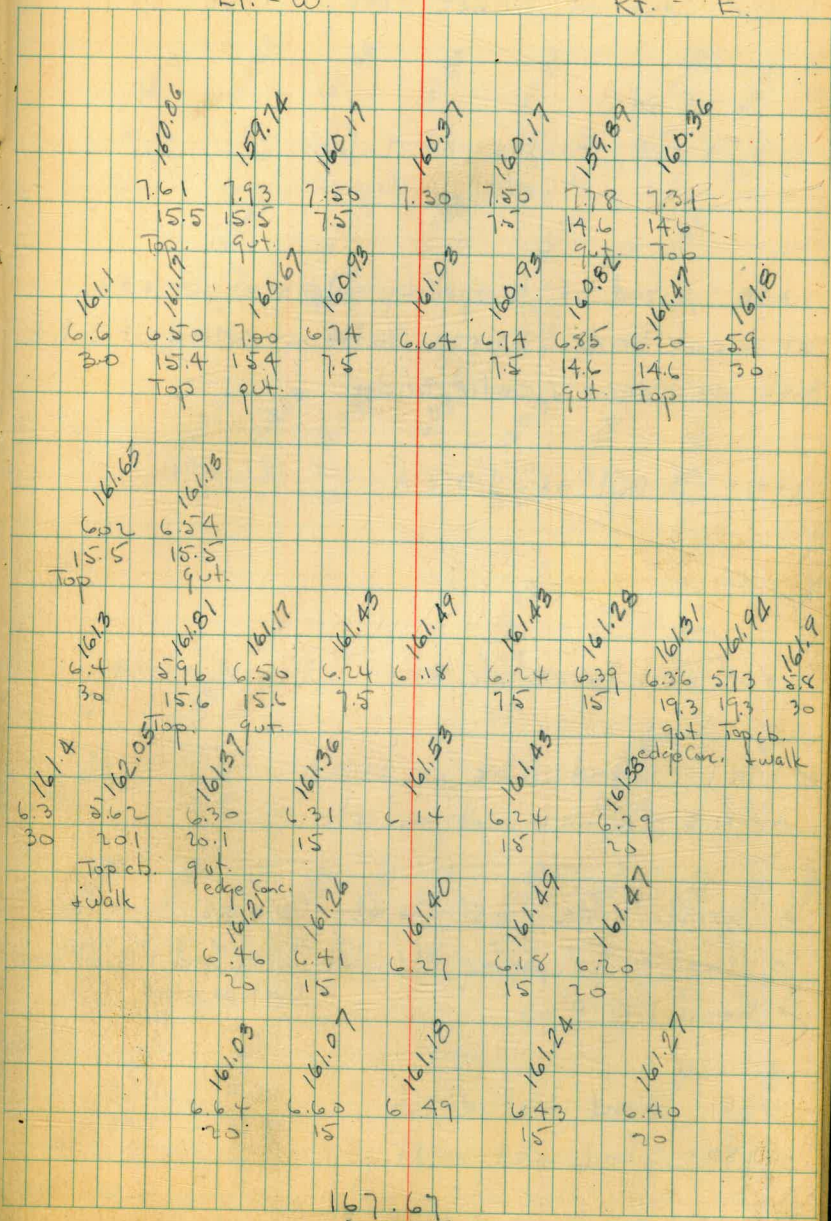 Lt. - W Rt. - E.
160.06 159.74 160.17 160.37 160.17 159.89 160.36
7.61 7.93 7.50 7.30 7.50 7.78 7.31
15.5 15.5 7.5 7.5 14.6 14.6
Top. gut. gut. Top
161.1 161.17 160.67 160.93 161.03 160.93 160.82 161.47 161.8
6.6 6.50 7.00 6.74 6.64 6.74 6.85 6.20 5.9
30 15.4 15.4 7.5 7.5 14.6 14.6 30
Top gut. gut. Top
161.65 161.13
6.02 6.54
15.5 15.5
Top gut.
161.3 161.81 161.17 161.43 161.49 161.43 161.28 161.31 161.94 161.9
6.4 5.96 6.50 6.24 6.18 6.24 6.39 6.36 5.73 5.8
30 15.6 15.6 7.5 7.5 15 19.3 19.3 30
Top. gut. gut. Top cb.
edge Conc. + walk
161.4 162.05 161.37 161.36 161.53 161.43 161.38
6.3 5.62 6.30 6.31 6.14 6.24 6.29
30 20.1 20.1 15 15 20
Top cb. gut.
+ walk edge Conc.
161.21 161.26 161.40 161.49 161.47
6.46 6.41 6.27 6.18 6.20
20 15 15 20
161.03 161.07 161.18 161.24 161.27
6.64 6.60 6.49 6.43 6.40
20 15 15 20
167.67